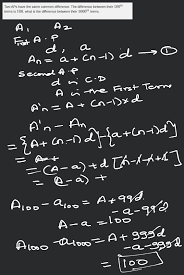 Two APs have the same common difference. The difference between their 100th
terms is 100, what is the difference between their 1000th terms.
A₁ A₂
First A.P
d, a
Aₙ = a + (n-1)d → ①
Second A.P
d is C.D
A is the First Term
A'ₙ = A + (n-1)xd
A'ₙ - Aₙ
= [A + (n-1)d] - [a + (n-1)d]
= A +
= (A-a) + d [n-1-n+1]
= (A-a) +
A₁₀₀ - a₁₀₀ = A + 99d
- a - 99d
A - a = 100
A₁₀₀₀ - a₁₀₀₀ = A + 999d
- a - 999d
= 100